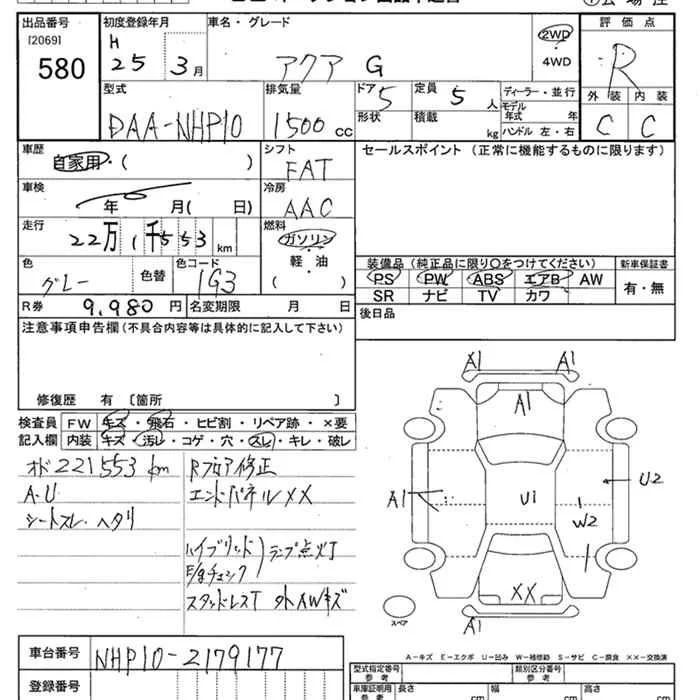 出品番号 初度登録年月 車名・グレード 評価点
[2069] H
580 25 3月 アクア G 2WD・4WD R
型式 排気量 ドア 定員 ディーラー・並行 外装 内装
DAA-NHP10 1500cc 5 5人 モデル年式 年 C C
形状 積載 kg ハンドル 左・右
車歴 シフト セールスポイント (正常に機能するものに限ります)
自家用・( ) FAT
車検 冷房
年 月( 日) AAC
走行 燃料
22万1千553km ガソリン
軽・油
( )
色 色替 色コード 装備品(純正品に限り〇をつけてください) 新車保証書
グレー 1G3 PS PW ABS エアB AW 有・無
SR ナビ TV カワ
R券 9,980円 名変期限 月 日 後日品
注意事項申告欄(不具合内容等は具体的に記入して下さい)
修復歴 有 [箇所 ]
検査員 FW キズ・飛石・ヒビ割・リペア跡・×要
記入欄 内装 キズ・汚レ・コゲ・穴・スレ・キレ・破レ
オド221553km Rフロア修正
A・U エンドパネルXX
シートスレ・ヘタリ
ハイブリッド
E/gチェック ランプ点灯
スタッドレスT 外AWキズ
A1 A1
A1
A1 U1 U2
W2
XX
A1
スペア
A-キズ E-エクボ U-凹み W-補修跡 S-サビ C-腐食 XX-交換済
車台番号 NHP10-2179177
登録番号
型式指定番号 類別区分番号
参考 参考
車庫証明用 長さ 幅 高さ
参考 cm cm cm